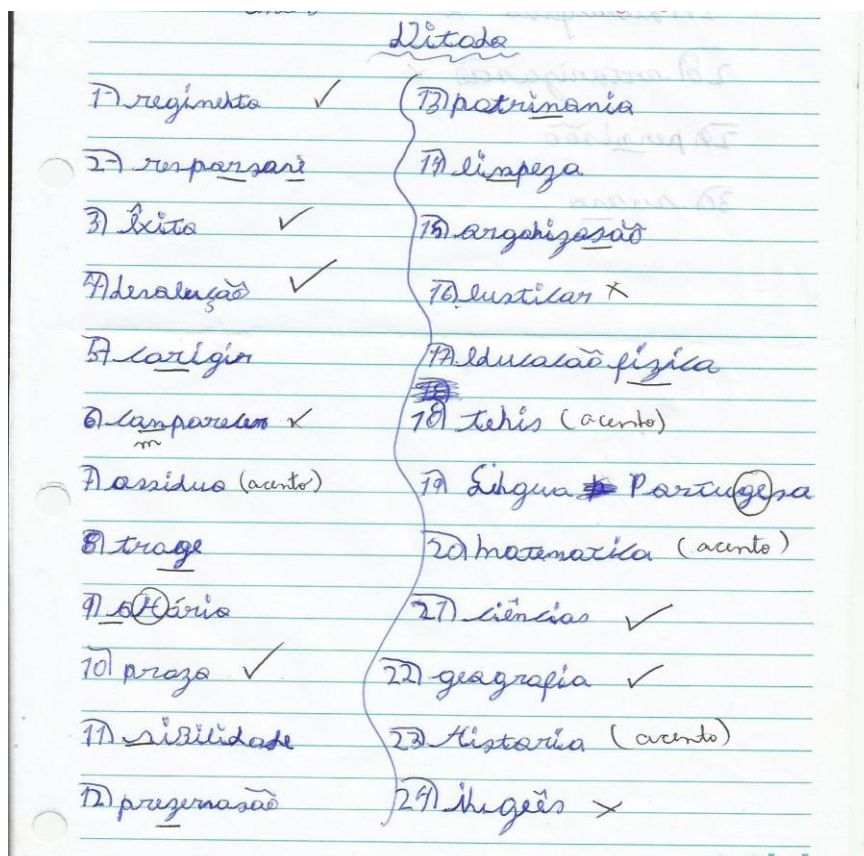 Ditado
1) regimento ✓
2) responsavi
3) êxito ✓
4) devolução ✓
5) corigir
6) conparecer ✓
m
7) assiduo (acento)
8) trage
9) oHário
10) prazo ✓
11) siBilidade
12) prezervasão
13) patrinonio
14) linpeza
15) organizasão
16) custicar ×
17) educacão fizica
18) tenis (acento)
19) Língua Portugesa
20) matematica (acento)
21) ciências ✓
22) geografia ✓
23) Historia (acento)
24) ingês ×